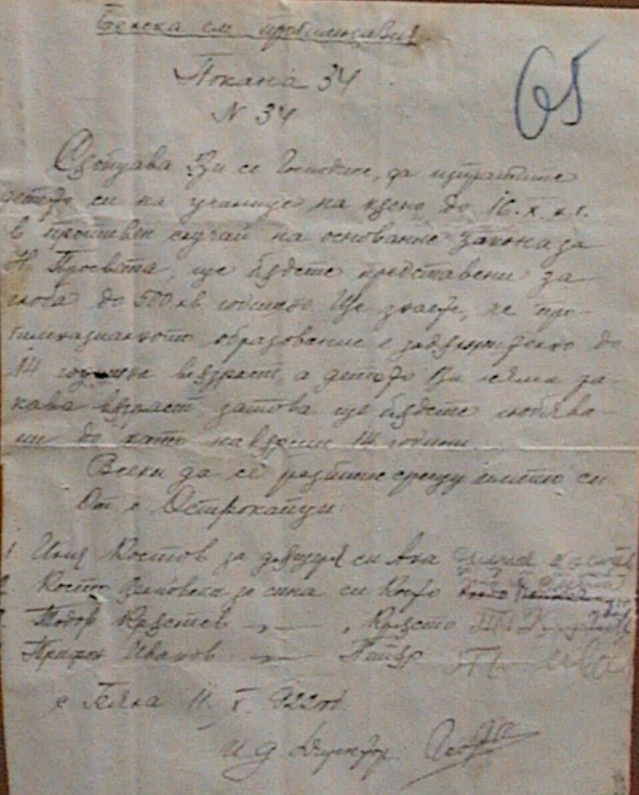 Белска см. прогимназия
Покана 34
N 34
65
Ви се Господине, да изпратите
детето си на училище на късно до 16.X. н.г.
в противен случай на основание закона за
Н. Просвета, ще бъдете представени за
глоба до 500 лв. годишно. Ще знаете, че про-
гимназиалното образование е задължително до
14 годишна възраст а детето Ви няма та-
кава възраст затова ще бъдете глобява-
ни до като навърши 14 години.
Всеки да се разпише срещу името си
От с. Острокапци:
1. Илия Костов за дъщеря си Ана
Коста за сина си
Тодор Кръстев —„— „ Кръсто
Трифон Иванов —„—
с. Бела 11. X. 922 год.
И. д. Директор: